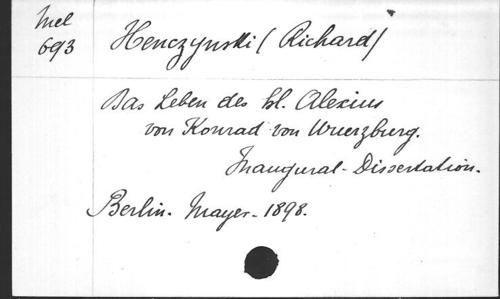 Mel
693
Henczynski (Richard)
Das Leben des hl. Alexius
von Konrad von Wuerzburg.
Inaugural-Dissertation.
Berlin. Mayer. 1898.